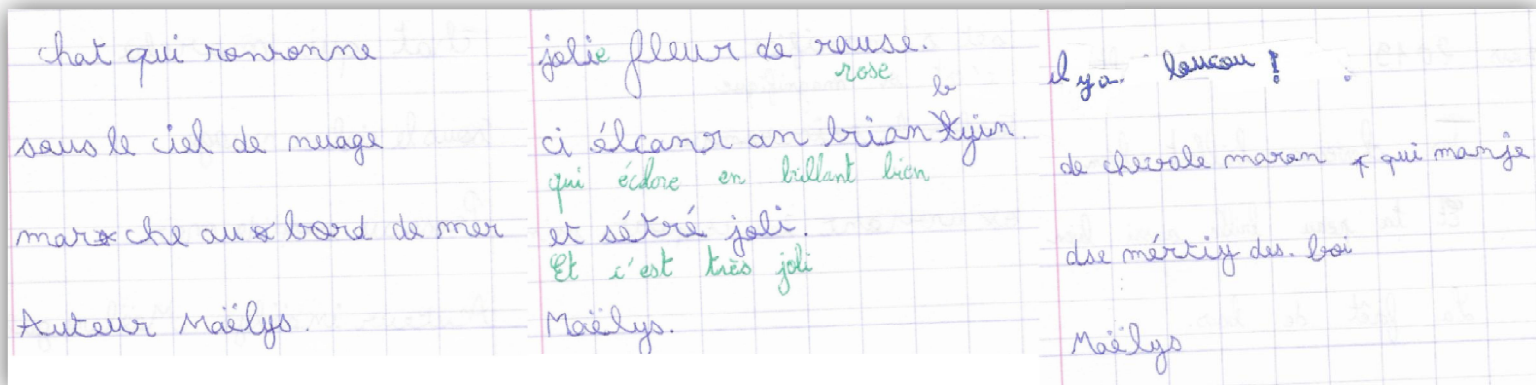 chat qui ronronne
sous le ciel de nuage
marche au bord de mer
Auteur Maëlys.
jolie fleur de rause.
rose
b
ci élcanr an brian yin.
qui éclore en brillant bien
et sétré joli.
Et c'est très joli
Maëlys.
il y a. !
de chevale maron qui manje
des. boi
Maëlys